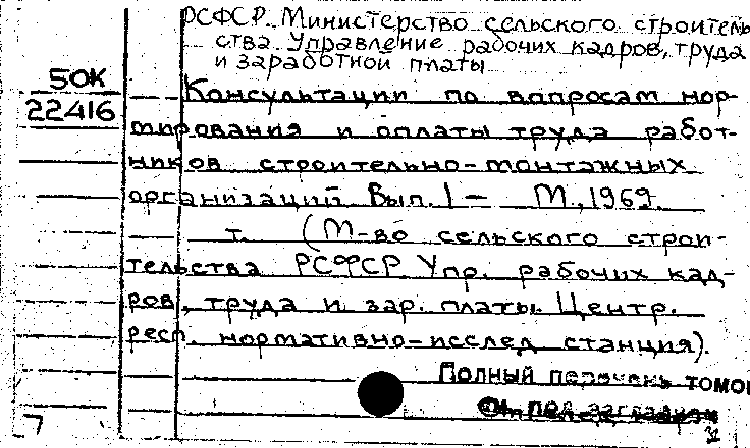 РСФСР. Министерство сельского строитель
ства. Управление рабочих кадров, труда
и заработной платы
50К
22416
Консультации по вопросам нор-
мирования и оплаты труда работ-
ников строительно-монтажных
организаций Вып. 1 — М., 1969.
т. (М-во сельского строи-
тельства РСФСР Упр. рабочих кад-
ров, труда и зар. платы. Центр.
респ. нормативно-исслед. станция).
Полный перечень томо
См. под заглавием
7